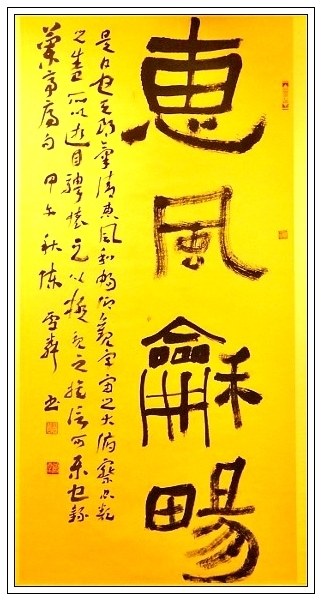 惠風龢暢
是日也天朗氣清惠風和暢仰觀宇宙之大俯察品類
之盛所以遊目騁懷足以極視之娛信可樂也錄
蘭亭序句 甲午秋陳 書